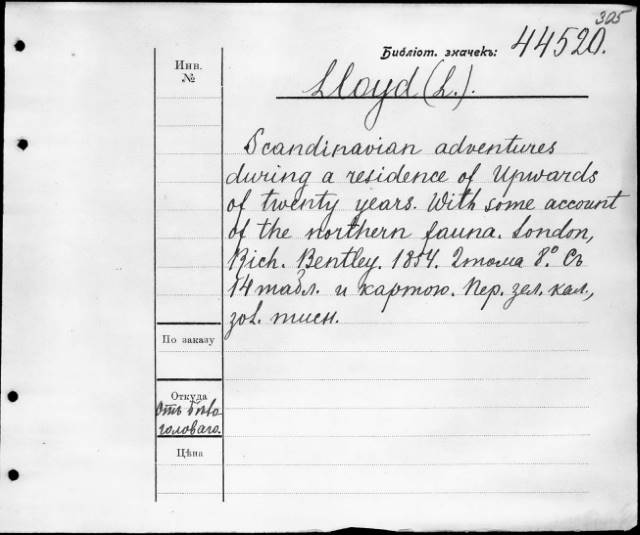 305
Библіот. значекъ: 44520.
Инв.
№
Lloyd (L.).
Scandinavian adventures
during a residence of Upwards
of twenty years. With some account
of the northern fauna. London,
Rich. Bentley. 1854. 2 тома 8.° Съ
14 табл. и картою. Пер. зел. кал.,
зол. тисн.
По заказу
Откуда
Отъ
головаго.
Цѣна